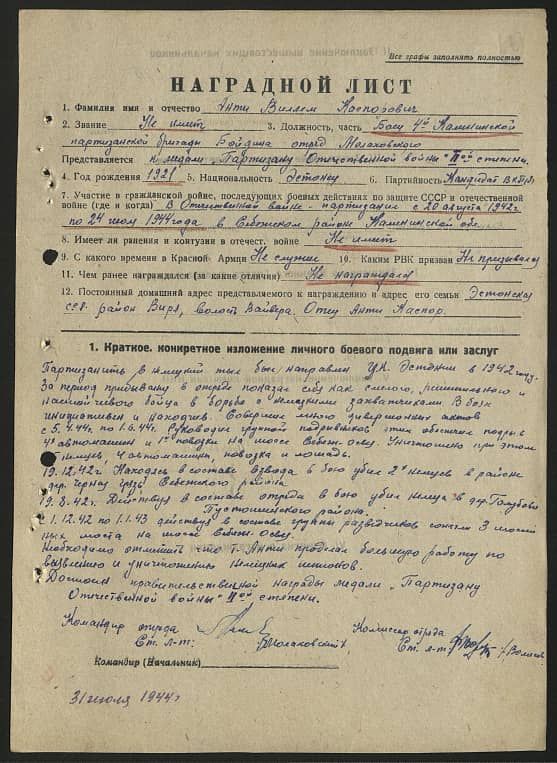 Все графы заполнять полностью
НАГРАДНОЙ ЛИСТ
1. Фамилия имя и отчество Анти Виллем Каспорович
2. Звание Не имеет 3. Должность, часть Боец 4й Калининской
партизанской бригады Бойдина отряд Молоховского
Представляется к медали "Партизану Отечественной войны" IIой степени.
4. Год рождения 1921 5. Национальность Эстонец 6. Партийность Кандидат ВКП(б)
7. Участие в гражданской войне, последующих боевых действиях по защите СССР и отечественной
войне (где и когда) В Отечественной войне - партизание с 20 августа 1942г
по 24 июля 1944 года в Себежском районе Калининской обл
8. Имеет ли ранения и контузии в отечест. войне Не имеет
9. С какого времени в Красной Армии Не служил 10. Каким РВК призван Не призывался
11. Чем ранее награждался (за какие отличия) Не награждался
12. Постоянный домашний адрес представляемого к награждению и адрес его семьи Эстонская
сср. район Виру, волость Вайвера. Отец Анти Каспор.
1. Краткое, конкретное изложение личного боевого подвига или заслуг
Партизанить в немецкий тыл был направлен ЦК Эстонии в 1942 году.
За период пребывания в отряде показал себя как смелого, решительного и
настойчивого бойца в борьбе с немецкими захватчиками. В бою
инициативен и находчив. Совершил много диверсионных актов
с 5.4.44г по 1.6.44г. Руководил группой подрывников, этим обеспечил подрыв
4х автомашин и 1ой повозки на шоссе Себеж-Осве. Уничтожено при этом
немцев, 4 автомашины, повозка и лошадь.
19.12.42г. Находясь в составе взвода в бою убил 2х немцев в районе
дер. Черная грязь Себежского района
19.8.42г. Действуя в составе отряда в бою убил немца в дер. Голубово
Пустошинского района.
1.12.42 по 1.1.43 действуя в составе группы разведчиков сожгли 3
ных моста на шоссе Себеж-Осве.
Необходимо отметить что т. Анти проделал большую работу по
выявлению и уничтожению немецких шпионов.
Достоин правительственной награды медали "Партизану
Отечественной войны" IIой степени.
Командир отряда Комиссар отряда
Ст. л-т: /Молоховский/ Ст. л-т:
Командир (Начальник)
31 июля 1944г